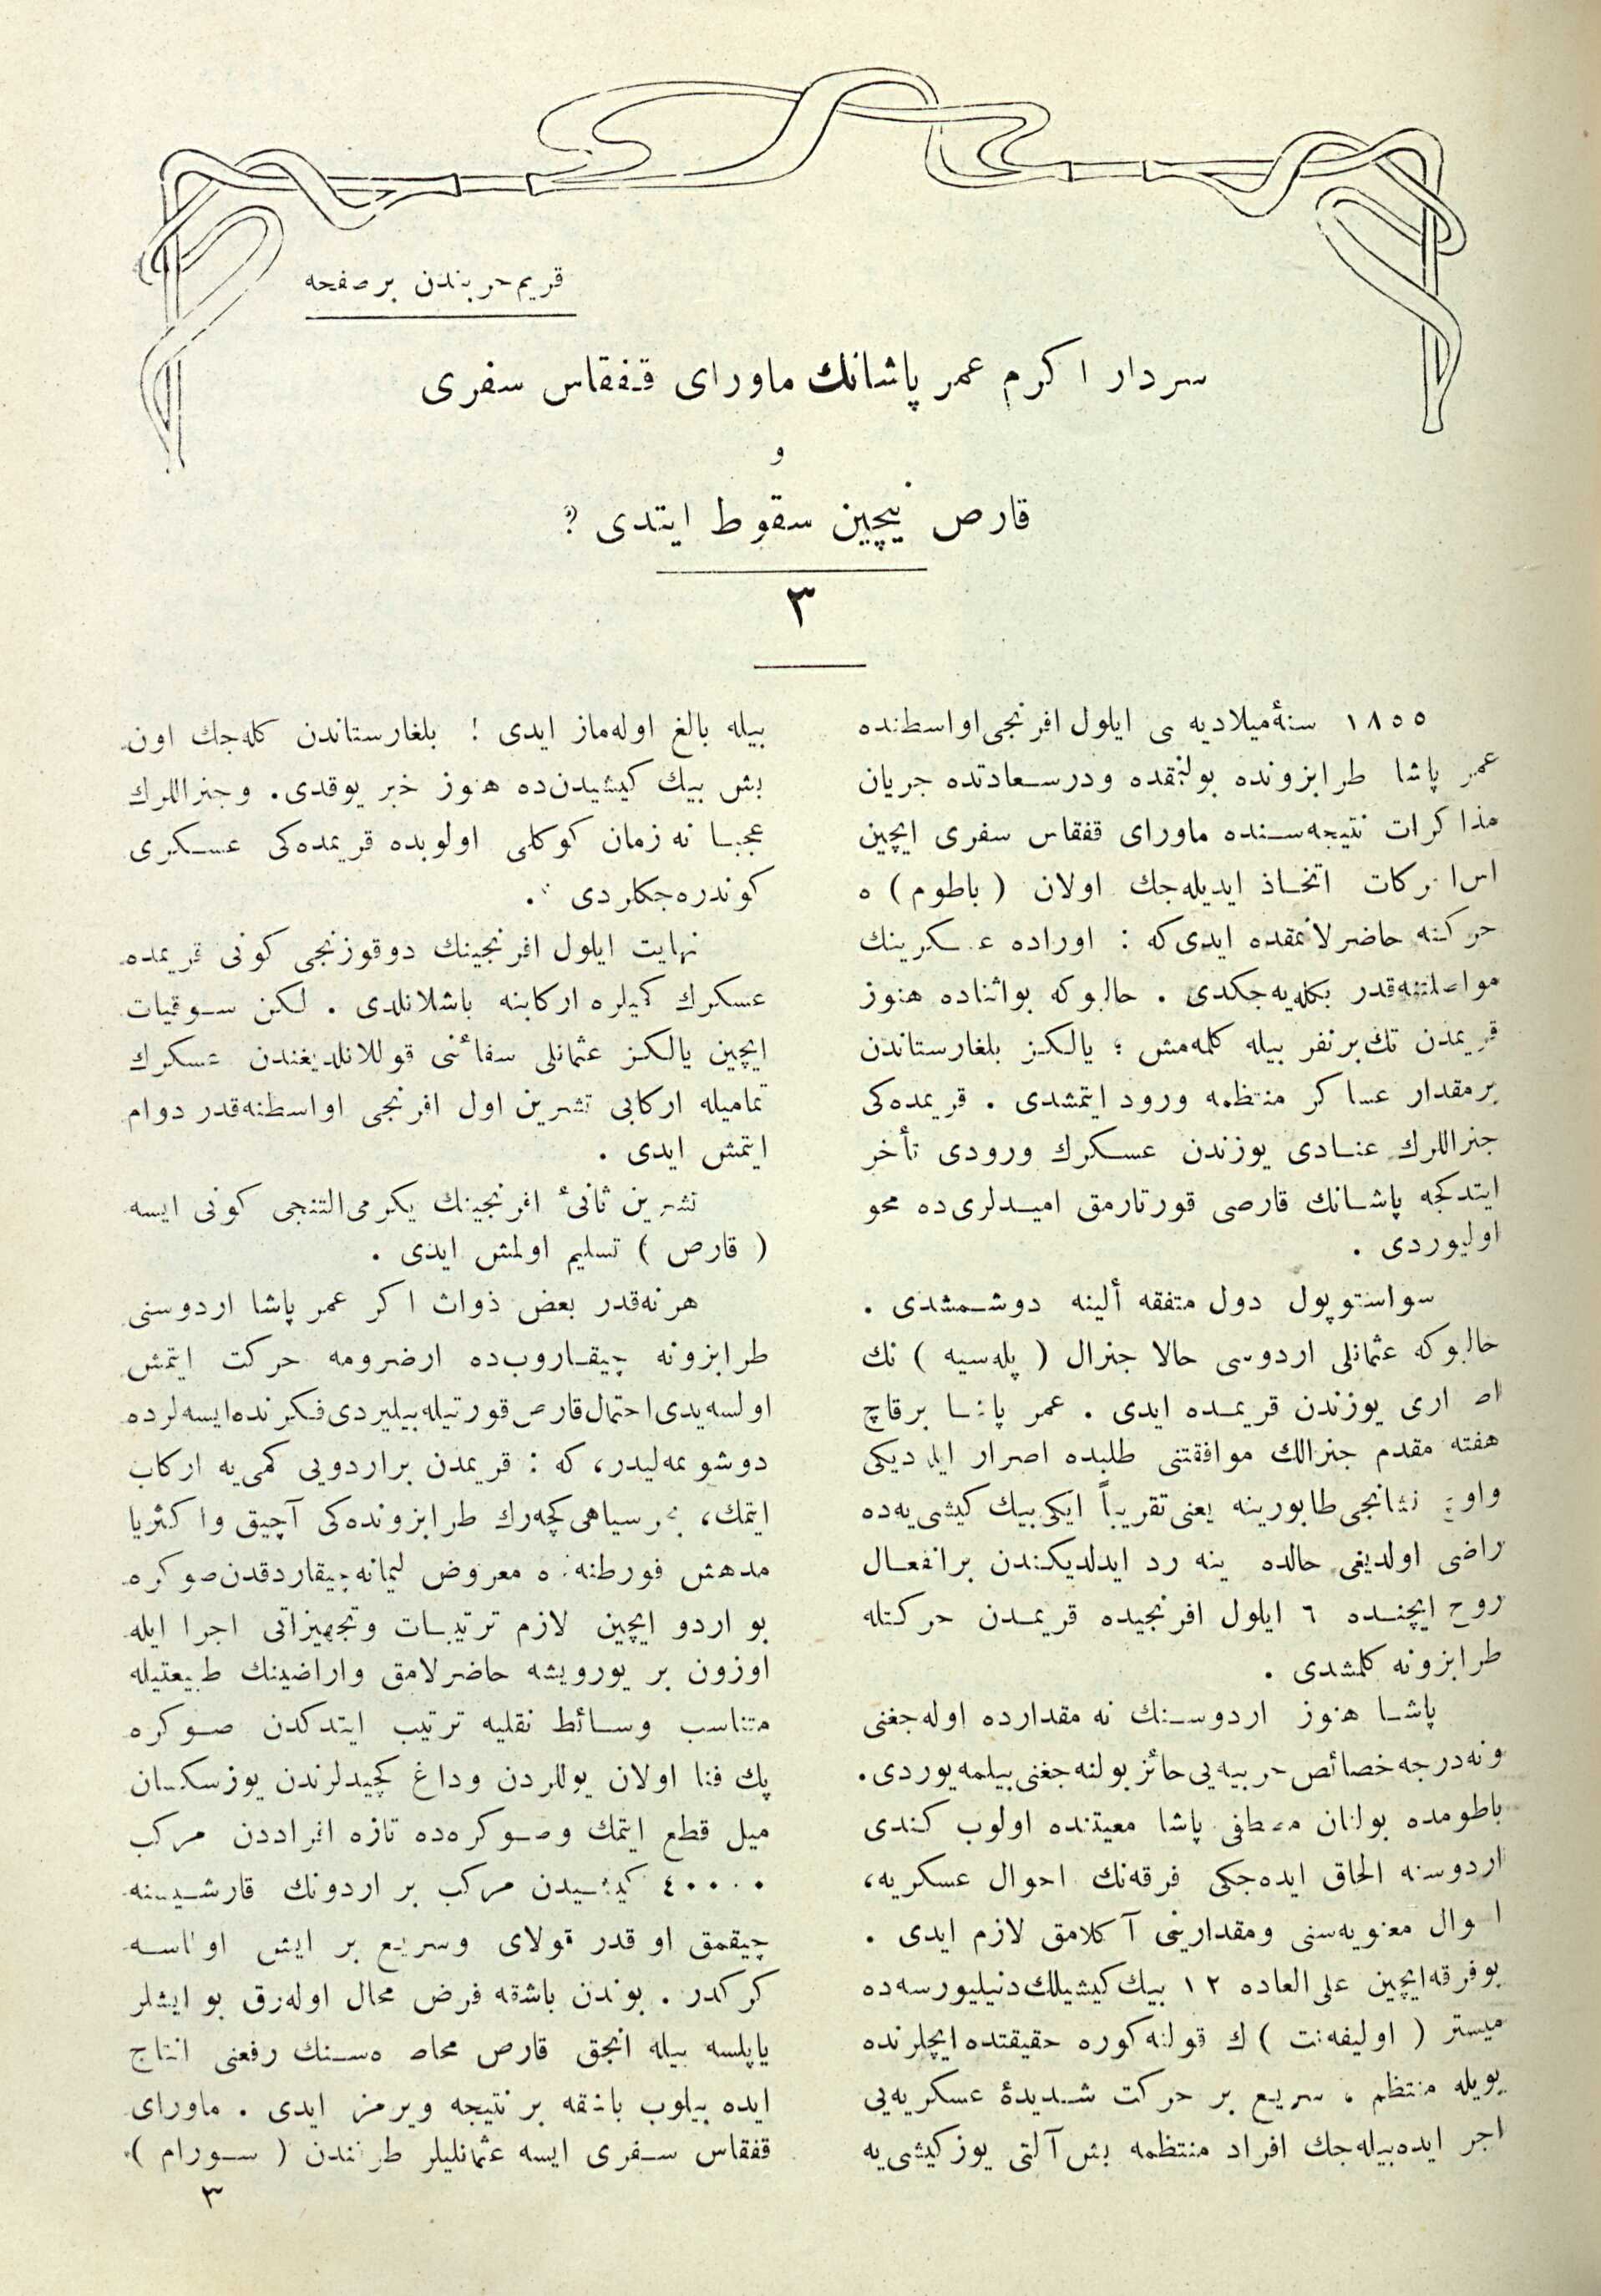 قريم حربندن بر صفحه
سردار اكرم عمر پاشانك ماوراى قفقاس سفرى
و
قارص نيچين سقوط ايتدى ؟
٣
١٨٥٥ سنهٔ ميلاديه سى ايلول افرنجى اواسطنده
عمر پاشا طرابزونده بولنمقده ودرسعادتده جريان
مذاكرات نتيجه‌سنده ماوراى قفقاس سفرى ايچين
اس الحركات اتخاذ ايديله‌جك اولان ( باطوم ) ه
حركته حاضرلانمقده ايدى كه : اوراده عسكرينك
مواصلتنه‌قدر بكله‌يه‌جكدى . حالبوكه بواثناده هنوز
قريمدن تك برنفر بيله كلمه‌مش ؛ يالكز بلغارستاندن
برمقدار عساكر منتظمه ورود ايتمشدى . قريمده‌كى
جنراللرك عنادى يوزندن عسكرك ورودى تأخر
ايتدكجه پاشانك قارصى قورتارمق اميدلرى‌ده محو
اوليوردى .
سواستوپول دول متفقه ألينه دوشمشدى .
حالبوكه عثمانلى اردوسى حالا جنرال ( پله‌سيه ) نك
اصرارى يوزندن قريمده ايدى . عمر پاشا برقاچ
هفته مقدم جنرالك موافقتنى طلبده اصرار ايله‌ديكى
واوچ نشانجى طابورينه يعنى تقريباً ايكى بيك كيشى‌يه‌ده
راضى اولديغى حالده ينه رد ايدلديكندن برانفعال
روح ايچنده ٦ ايلول افرنجيده قريمدن حركتله
طرابزونه كلمشدى .
پاشا هنوز اردوسنك نه مقدارده اوله‌جغنى
ونه‌درجه خصائص حربيه‌يى حائز بولنه‌جغنى بيلمه‌يوردى.
باطومده بولنان مصطفى پاشا معيتنده اولوب كندى
اردوسنه الحاق ايده‌جكى فرقه‌نك احوال عسكريه،
احوال معنويه‌سنى ومقدارينى آكلامق لازم ايدى .
بوفرقه‌ايچين على العاده ١٢ بيك كيشيلك دنيليورسه‌ده
ميستر ( اوليفه‌نت ) ك قولنه كوره حقيقتده ايچلرنده
بويله منتظم ، سريع بر حركت شديدهٔ عسكريه‌يى
اجرا ايده‌بيله‌جك افراد منتظمه بش آلتى يوز كيشى‌يه
بيله بالغ اوله‌ماز ايدى ! بلغارستاندن كله‌جك اون
بش بيك كيشيدن‌ده هنوز خبر يوقدى. وجنراللرك
عجبا نه زمان كوكلى اولوبده قريمده‌كى عسكرى
كوندره‌جكلردى ؟.
نهايت ايلول افرنجينك دوقوزنجى كونى قريمده
عسكرك كميلره اركابنه باشلانلدى . لكن سوقيات
ايچين يالكز عثمانلى سفائنى قوللانلديغندن عسكرك
تماميله اركابى تشرين اول افرنجى اواسطنه‌قدر دوام
ايتمش ايدى .
تشرين ثانىٔ افرنجينك يكرمى‌التنجى كونى ايسه
( قارص ) تسليم اولمش ايدى .
هرنه‌قدر بعض ذوات اكر عمر پاشا اردوسنى
طرابزونه چيقاروب‌ده ارضرومه حركت ايتمش
اولسه‌يدى احتمال قارص قورتيله‌بيليردى فكرنده ايسه‌لرده
دوشونمه‌ليدر، كه : قريمدن براردويى كمى‌يه اركاب
ايتمك، بحر سياهى كچه‌رك طرابزونده‌كى آچيق واكثريا
مدهش فورطنه‌لره معروض ليمانه چيقاردقدن صوكره
بو اردو ايچين لازم ترتيبات وتجهيزاتى اجرا ايله
اوزون بر يورويشه حاضرلامق واراضينك طبيعتيله
متناسب وسائط نقليه ترتيب ايتدكدن صوكره
پك فنا اولان يوللردن وداغ كچيدلرندن يوزسكسان
ميل قطع ايتمك وصوكره‌ده تازه افراددن مركب
٤٠٠٠٠ كيشيدن مركب بر اردونك قارشيسنه
چيقمق او قدر قولاى وسريع بر ايش اولماسه
كركدر . بوندن باشقه فرض محال اوله‌رق بو ايشلر
ياپلسه بيله انجق قارص محاصره‌سنك رفعنى انتاج
ايده بيلوب باشقه بر نتيجه ويرمز ايدى . ماوراى
قفقاس سفرى ايسه عثمانليلر طرفندن ( سورام )
٣